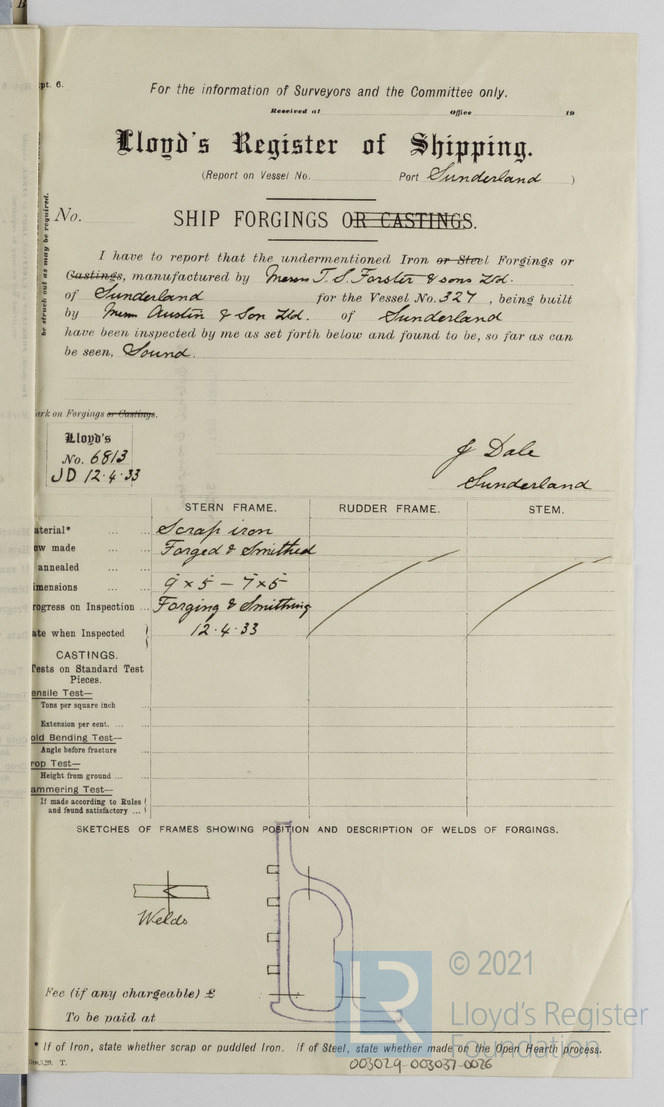 pt. 6.
For the information of Surveyors and the Committee only.
Received at Office 19
Lloyd's Register of Shipping.
(Report on Vessel No. Port Sunderland )
No. SHIP FORGINGS OR CASTINGS.
I have to report that the undermentioned Iron or Steel Forgings or
Castings, manufactured by Messrs T. S. Forster & sons Ltd.
of Sunderland for the Vessel No. 327 , being built
by Messrs Austin & Son Ltd. of Sunderland
have been inspected by me as set forth below and found to be, so far as can
be seen, Sound.
be struck out as may be required.
ark on Forgings or Castings.
Lloyd's
No. 6813
JD 12.4.33
J Dale
Sunderland
STERN FRAME. RUDDER FRAME. STEM.
aterial* ... ... Scrap iron
ow made ... ... Forged & Smithed
annealed ... ...
imensions ... ... 9" x 5 - 7" x 5"
rogress on Inspection ... Forging & Smithing
ate when Inspected 12.4.33
CASTINGS.
Tests on Standard Test
Pieces.
ensile Test—
Tons per square inch ...
Extension per cent. ... ...
old Bending Test—
Angle before fracture ...
rop Test—
Height from ground ... ...
ammering Test—
If made according to Rules
and found satisfactory ...
SKETCHES OF FRAMES SHOWING POSITION AND DESCRIPTION OF WELDS OF FORGINGS.
Welds
Fee (if any chargeable) £
To be paid at
* If of Iron, state whether scrap or puddled Iron. If of Steel, state whether made on the Open Hearth process.
T.
003029-003037-0026
LR
© 2021
Lloyd's Register
Foundation